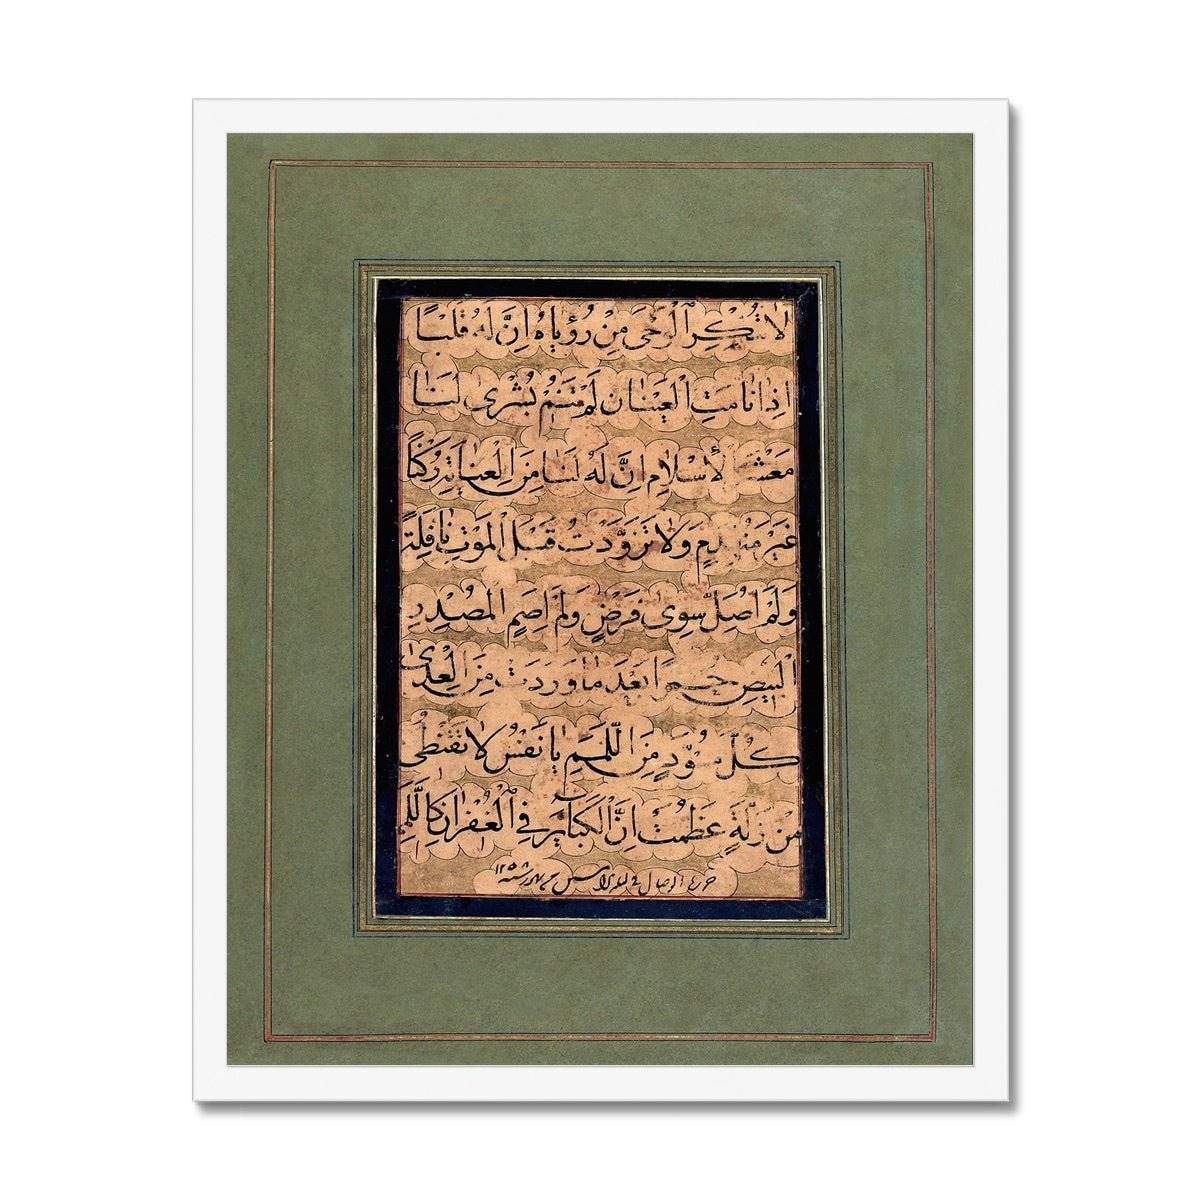 لا تُنْكِرِ الْوَحْيَ مِنْ رُؤْيَاهُ اِنَّ لَهُ قَلْبًا
اِذَا نَامَتِ الْعَيْنَانِ لَمْ يَنَمْ بُشْرٰى لَنَا
مَعْشَرَ الْاِسْلَامِ اِنَّ لَهُ لَنَا مِنَ الْعِنَايَةِ رُكْنًا
غَيْرَ مُنْهَدِمٍ وَلَا تَزَوَّدْتُ قَبْلَ الْمَوْتِ نَافِلَةً
وَلَمْ اُصَلِّ سِوٰى فَرْضٍ وَلَمْ اَصُمِ
الْبِيْضِ حُمْرًا بَعْدَ مَا وَرَدَتْ مِنَ الْعِدٰى
كُلَّ مُسْوَدٍّ مِنَ اللِّمَمِ يَا نَفْسُ لَا تَقْنَطِي
مِنْ زَلَّةٍ عَظُمَتْ اِنَّ الْكَبَائِرَ فِي الْغُفْرَانِ كَاللَّمَمِ